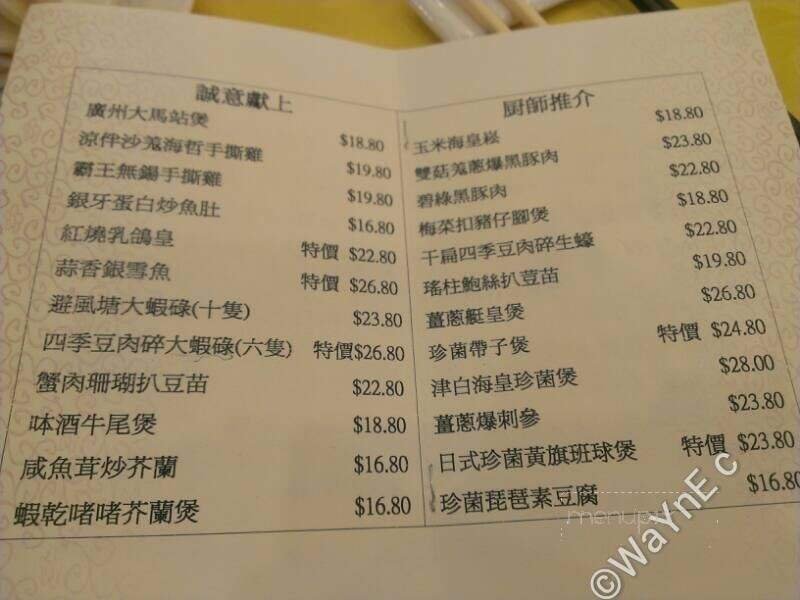 誠意獻上
廣州大馬站煲 $18.80
涼伴沙羗海哲手撕雞 $19.80
霸王無鍚手撕雞 $19.80
銀牙蛋白炒魚肚 $16.80
紅燒乳鴿皇 特價 $22.80
蒜香銀雪魚 特價 $26.80
避風塘大蝦碌(十隻) $23.80
四季豆肉碎大蝦碌(六隻) 特價$26.80
蟹肉珊瑚扒豆苗 $22.80
呠酒牛尾煲 $18.80
咸魚茸炒芥蘭 $16.80
蝦乾啫啫芥蘭煲 $16.80
厨師推介
玉米海皇崧 $18.80
雙菇羗蔥爆黑豚肉 $23.80
碧綠黑豚肉 $22.80
梅菜扣豬仔腳煲 $18.80
干扁四季豆肉碎生蠔 $22.80
瑤柱鮑絲扒荳苗 $19.80
薑蔥艇皇煲 $26.80
珍菌帶子煲 特價 $24.80
津白海皇珍菌煲 $28.00
薑蔥爆刺參 $23.80
日式珍菌黃旗班球煲 特價 $23.80
珍菌琵琶素豆腐 $16.80
menupix
©WaYnE c